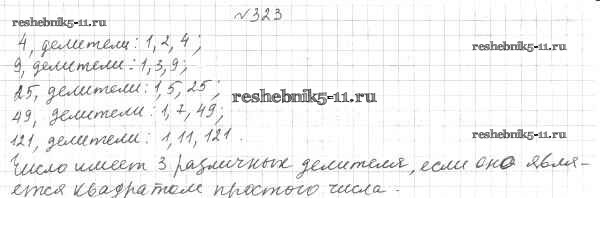 №323
reshebnik5-11.ru
4, делители: 1, 2, 4;
reshebnik5-11.ru
9, делители: 1, 3, 9;
25, делители: 1, 5, 25;
reshebnik5-11.ru
49, делители: 1, 7, 49;
121, делители: 1, 11, 121.
reshebnik5-11.ru
Число имеет 3 различных делителя, если оно явля-
ется квадратом простого числа.